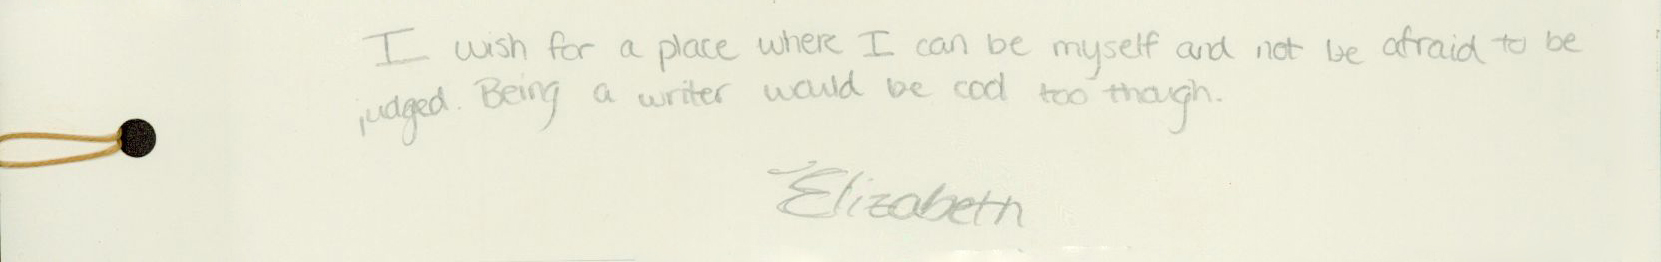 I wish for a place where I can be myself and not be afraid to be
judged. Being a writer would be cool too though.
Elizabeth